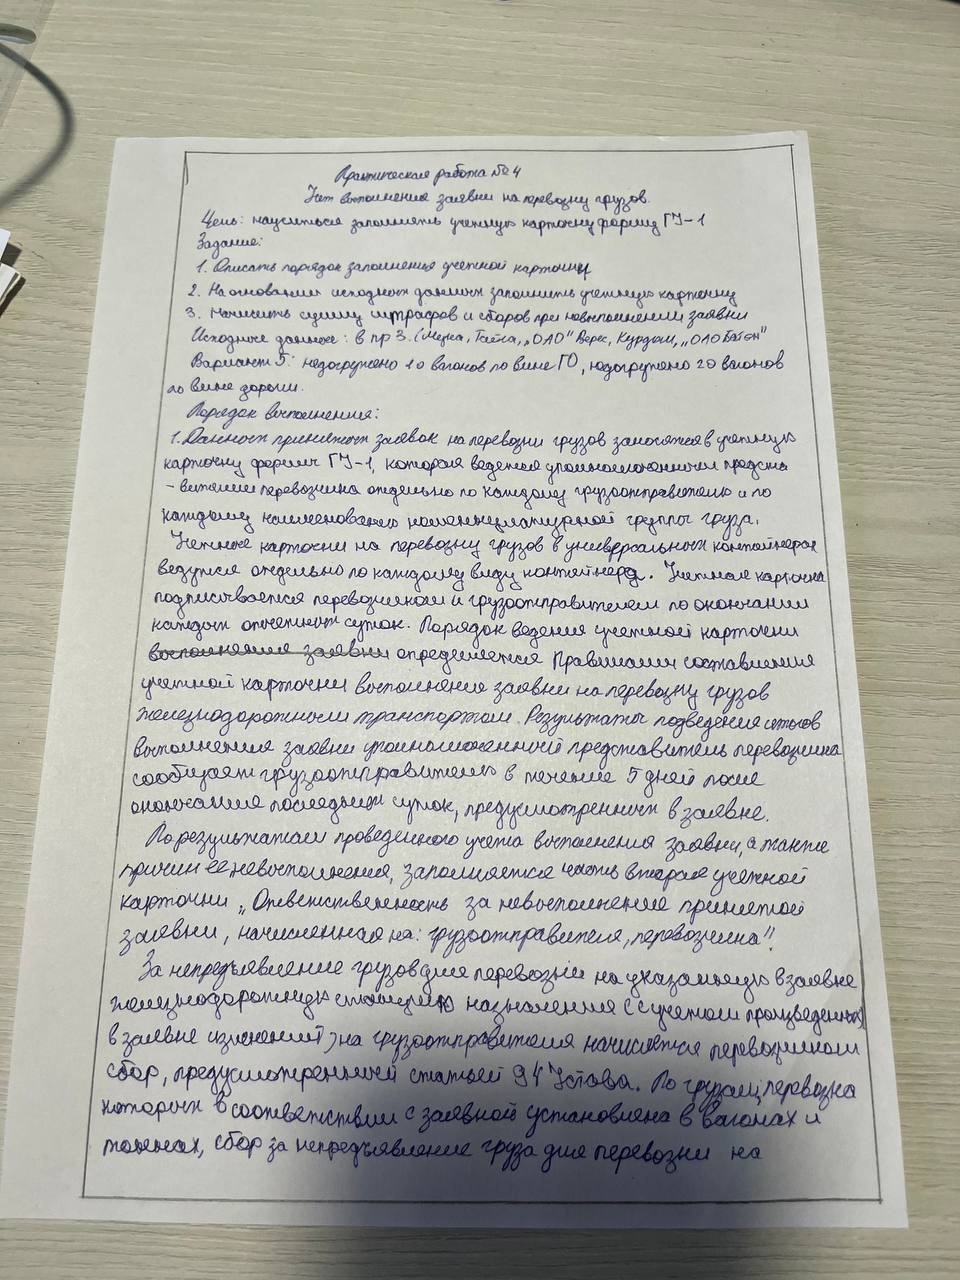 Практическая работа №4
Учет выполнения заявки на перевозку грузов.
Цель: научиться заполнять учетную карточку форму ГУ-1
Задание:
1. Описать порядок заполнения учетной карточки
2. На основании исходных данных заполнить учетную карточку
3. Начислить сумму штрафов и сборов при невыполнении заявки
Исходные данные: в пр 3. (Мука, Тайга, „ОАО" Верес, Курдам, „ОАО Батон"
Вариант 5: недогружено 10 вагонов по вине ГО, недогружено 20 вагонов
по вине дороги.
Порядок выполнения:
1. Данных принятых заявок на перевозки грузов заносятся в учетную
карточку формы ГУ-1, которая ведется уполномоченным предста
- вителем перевозчика отдельно по каждому грузоотправителю и по
каждому наименованию номенклатурной группы груза.
Учетные карточки на перевозку грузов в универсальных контейнерах
ведутся отдельно по каждому виду контейнера. Учетная карточка
подписывается перевозчиком и грузоотправителем по окончании
каждых отчетных суток. Порядок ведения учетной карточки
выполнения заявки определяется Правилами составления
учетной карточки выполнения заявки на перевозку грузов
железнодорожным транспортом. Результаты подведения итогов
выполнения заявки уполномоченный представитель перевозчика
сообщает грузоотправителю в течение 5 дней после
окончания последних суток, предусмотренных в заявке.
По результатам проведенного учета выполнения заявки, а также
причин ее невыполнения, заполняется часть вторая учетной
карточки „Ответственность за невыполнение принятой
заявки, начисленная на: грузоотправителя, перевозчика".
За непредъявление грузов для перевозки на указанную в заявке
железнодорожную станцию назначения (с учетом произведенных
в заявке изменений), на грузоотправителя начисляется перевозчиком
сбор, предусмотренный статьей 94 Устава. По грузам, перевозка
которых в соответствии с заявкой установлена в вагонах и
тоннах, сбор за непредъявление груза для перевозки на